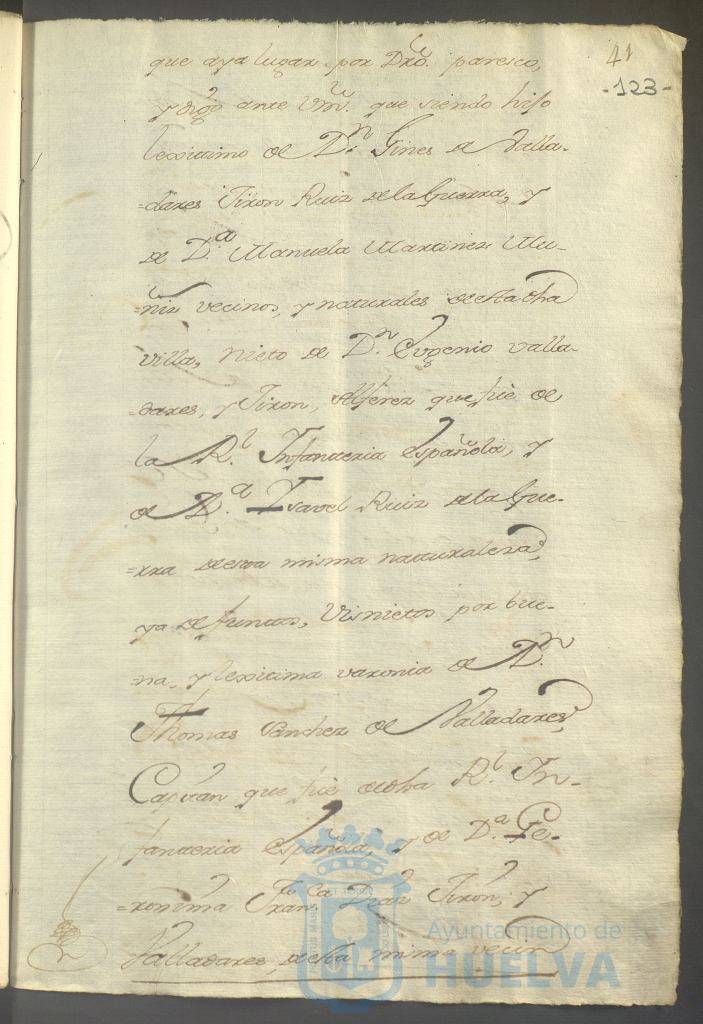 41
-123-
que aya lugar por Dro. paresco,
y digo ante Vm. que siendo hijo
lexitimo de Dn. Gines de Valla-
=dares Tixon Ruiz de la Guerra, y
de D.a Manuela Martinez Mu-
=ñiz vecinos, y naturales de esta dha
villa, Nieto de Dn. Eugenio Valla-
=dares, y Tixon, Alferez que fue de
la Rl. Infanteria Española, y
de D.a Ysavel Ruiz de la Gue-
=rra de esta misma naturaleza,
ya defuntos, Visnietos por bue-
=na, y lexitima varonia de Dn.
Thomas Sanchez de Valladares,
Capitan que fue de dha Rl. In-
fanteria Española, y de D.a Ge-
=ronima Fran.ca Tixon, y
Valladares, de esta misma vecin
Ayuntamiento de
HUELVA